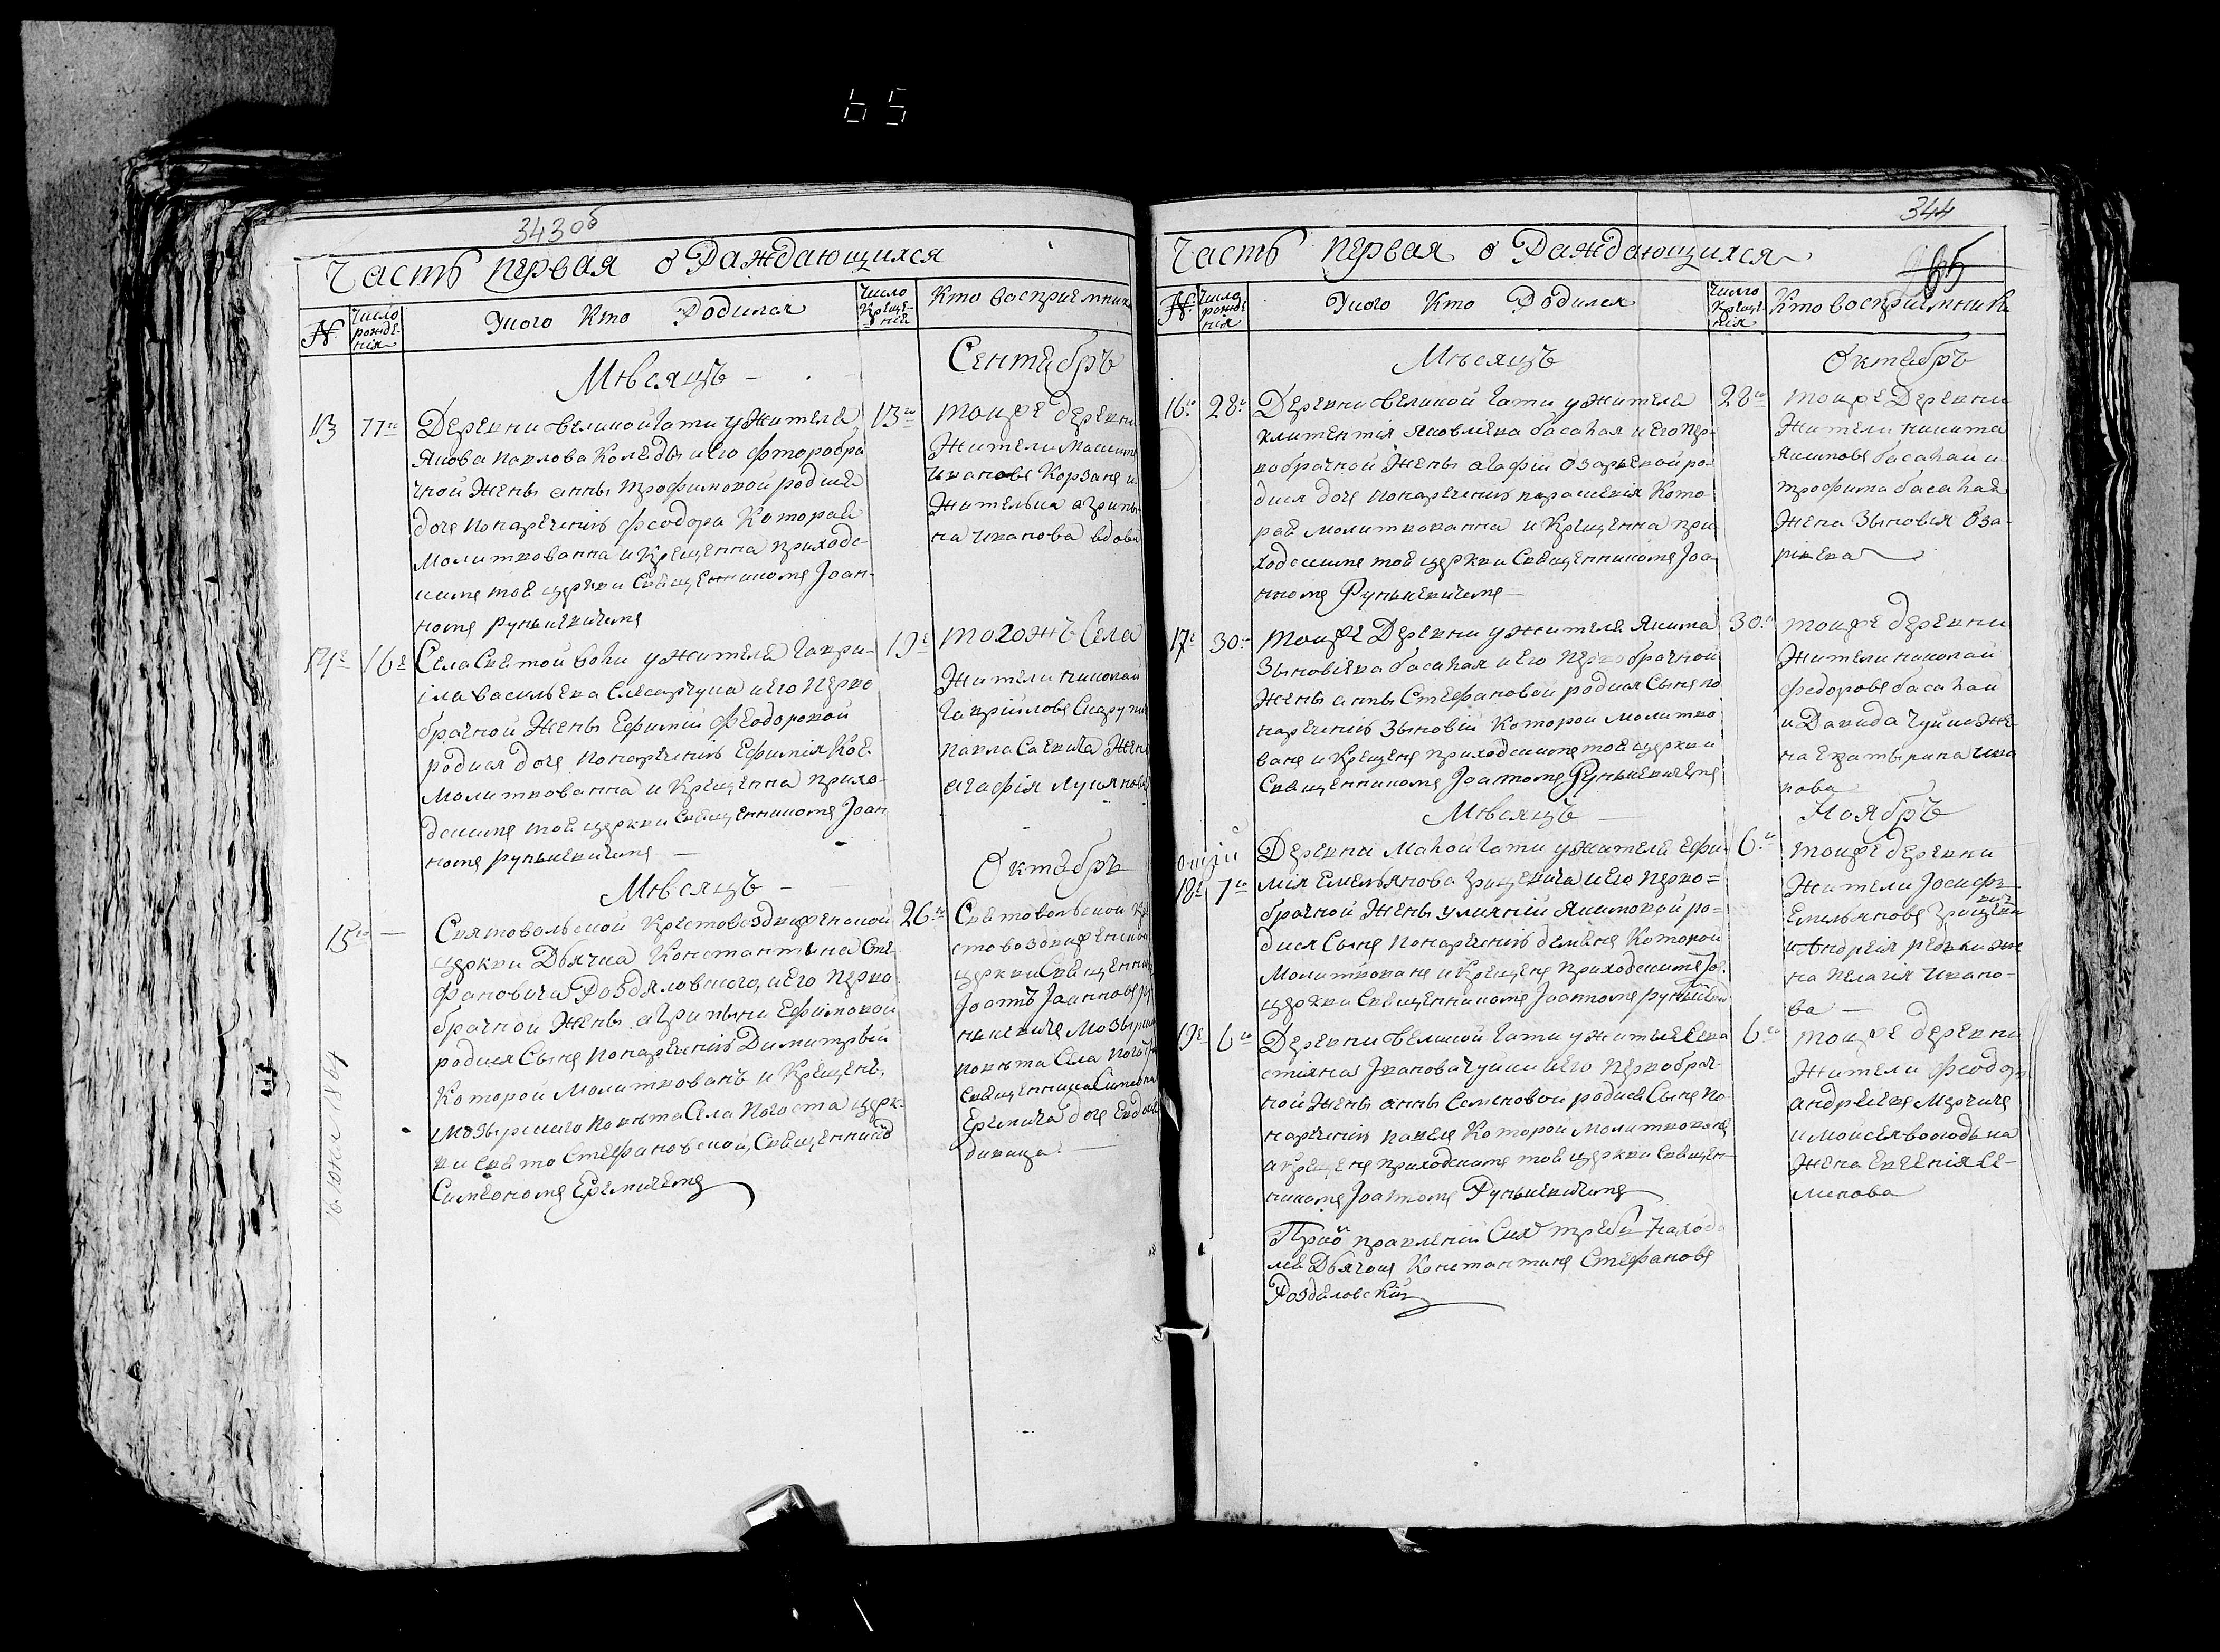 65
343об
Часть первая о Раждающихся
№
Число рождения
Числo Крещенiй
У кого Кто Родился
Кто восприемники
Мѣсяцъ Сентябрь
13 11го
Деревни великой Гати у жителя
Якова Павлова Коляды и его фторобра
чной жены анны трофимовой родися
доче понареченiю феодора Которая
молиткованна и Крещенна приходс
киме той церкви Священникоме Јоан
номе рункевичеме
13го
тоиже деревни
Жители
Иванове Корзане и
Жителька агрипи
на иванова вдова
14е 16е
Села святой воли у жителя гаври
iла васильева и его перво
брачной Жены Ефимiи феодоровой
родися доче понареченiю Ефимiя Кое.
молиткованна и Крещенна прихо
дскиме той церкви священникоме Јоан
номе рункевичеме
19е
тогожъ Села
Жители николай
гаврiилове
павла Савича Жена
агафiя
Мѣсяцъ Октябрь
15го
Святовольской Крестовоздвиженской
церкви Дьячка Константина Сте
фановича Роздяловского, и его перво
брачной Жены агрипины Ефимовой
родися Сыне понареченiю Димитрiй
Которой молиткованъ и Крещенъ,
мозырского повѣта Села погоста церк
ви свято Стефановской, Священнико
Симеономе Еремичеме
26го
Святовольской Кре
стовоздвиженской
церкви Священник
Јоаннъ Јоаннове ру
нкевиче мозырска
повѣта Села погоста
священника Симеона
Еремича доче Евдокiя
дивица
344
965
Часть первая о Раждающихся
№
Число рожденiя
У кого Кто Родился
Число Крещенiя
Кто восприемники
Мѣсяцъ Октябрь
16го 28го
Деревни великой гати у жителя
климентiя Яковлева басагая и его пер
вобрачной Жены агафiи Озарѣевой ро
дися доче понареченiю парасвевiя Кото
рая молиткованна и Крещенна при
ходскиме той церкви Священникоме Јоа
нноме Рункевичеме
28го
тоиже Деревни
Жители никита
Якимове басагай и
трофима басагая
Жена Зыновiя Оза
рiева
17е 30го
тоиже Деревни у жителя Якима
Зыновiева басагая и его первобрачной
Жены анны Стефановой родися Сыне по
нареченiю Зыновiй Которой молитко
ване и Крещене приходскиме той церкви
Священникоме Јоанноме Рункевичеме
30го
тоиже деревни
Жители николай
федорове басагай
и Давида Чуйка же
на Екатырина ива
нова
Мѣсяцъ Ноябрь
18е 7го
Деревни малой гати у жителя Ефи
мiя Емельянова Грицкевича и его перво
брачной Жены улиянiй Якимовой ро
дися Сыне понареченiю Которой
молитковане и Крещене приходскиме той
церкви Священникоме Јоанноме рункевич
6го
тоиже деревни
Жители Јосифе
Емельянове Грицкевич
и андрея редьки же
на пелагiя ивано
ва
19е 6го
Деревни великой гати у жителя Сева
стiяна Јванова Чуйки и его первобрач
ной Жены анны Семеновой родися Сыне по
нареченiю павел Которой молитковане
и Крещене приходскиме той церкви священ
никоме Јоанноме Рункевичеме
6го
тоиже деревни
Жители феодоръ
андрѣеве марчик
и моисея володька
Жена Евгенiя Се
микова
При исправленiи Сих треб находи
лся Дьячок Константине Стефанове
Роздяловскiй